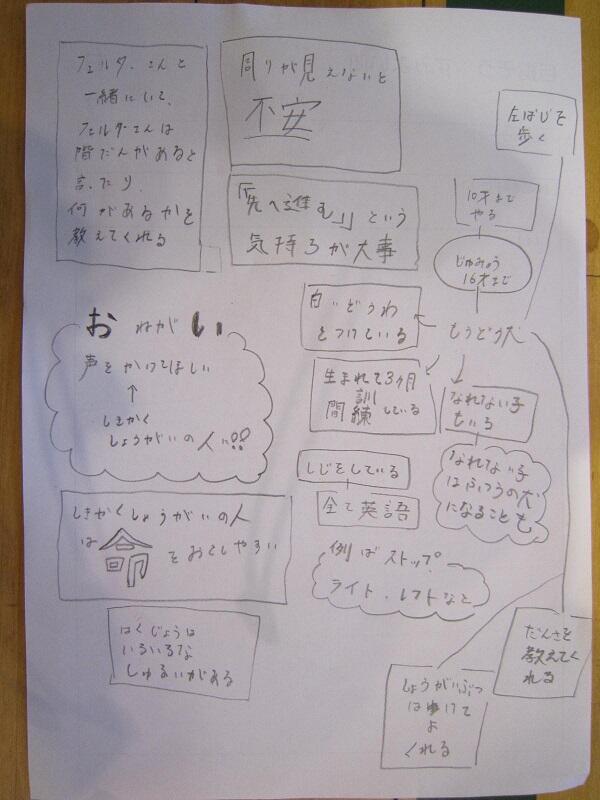 フェルダーさんと
一緒にいて、
フェルダーさんは
階だんがあると
言ったり、
何があるかを
教えてくれる
周りが見えないと
不安
「先へ進む！」という
気持ちが大事
左はじを
歩く
10才まで
やる
じゅみょう
16才まで
もうどう犬
白いどうわ
をつけている
生まれて3ヶ月
間訓練している
なれない子
もいる
なれない子
はふつうの犬
になることも
おねがい
声をかけてほしい
↑
しきかく
しょうがいの人に!!
しじをしている
全て英語
例ばストップ、
ライト、レフトなど
しきかくしょうがいの人
は命をおとしやすい
はくじょうは
いろいろな
しゅるいがある
だんさを
教えてく
れる
しょうがいぶつ
はゆけて
よ
くれる